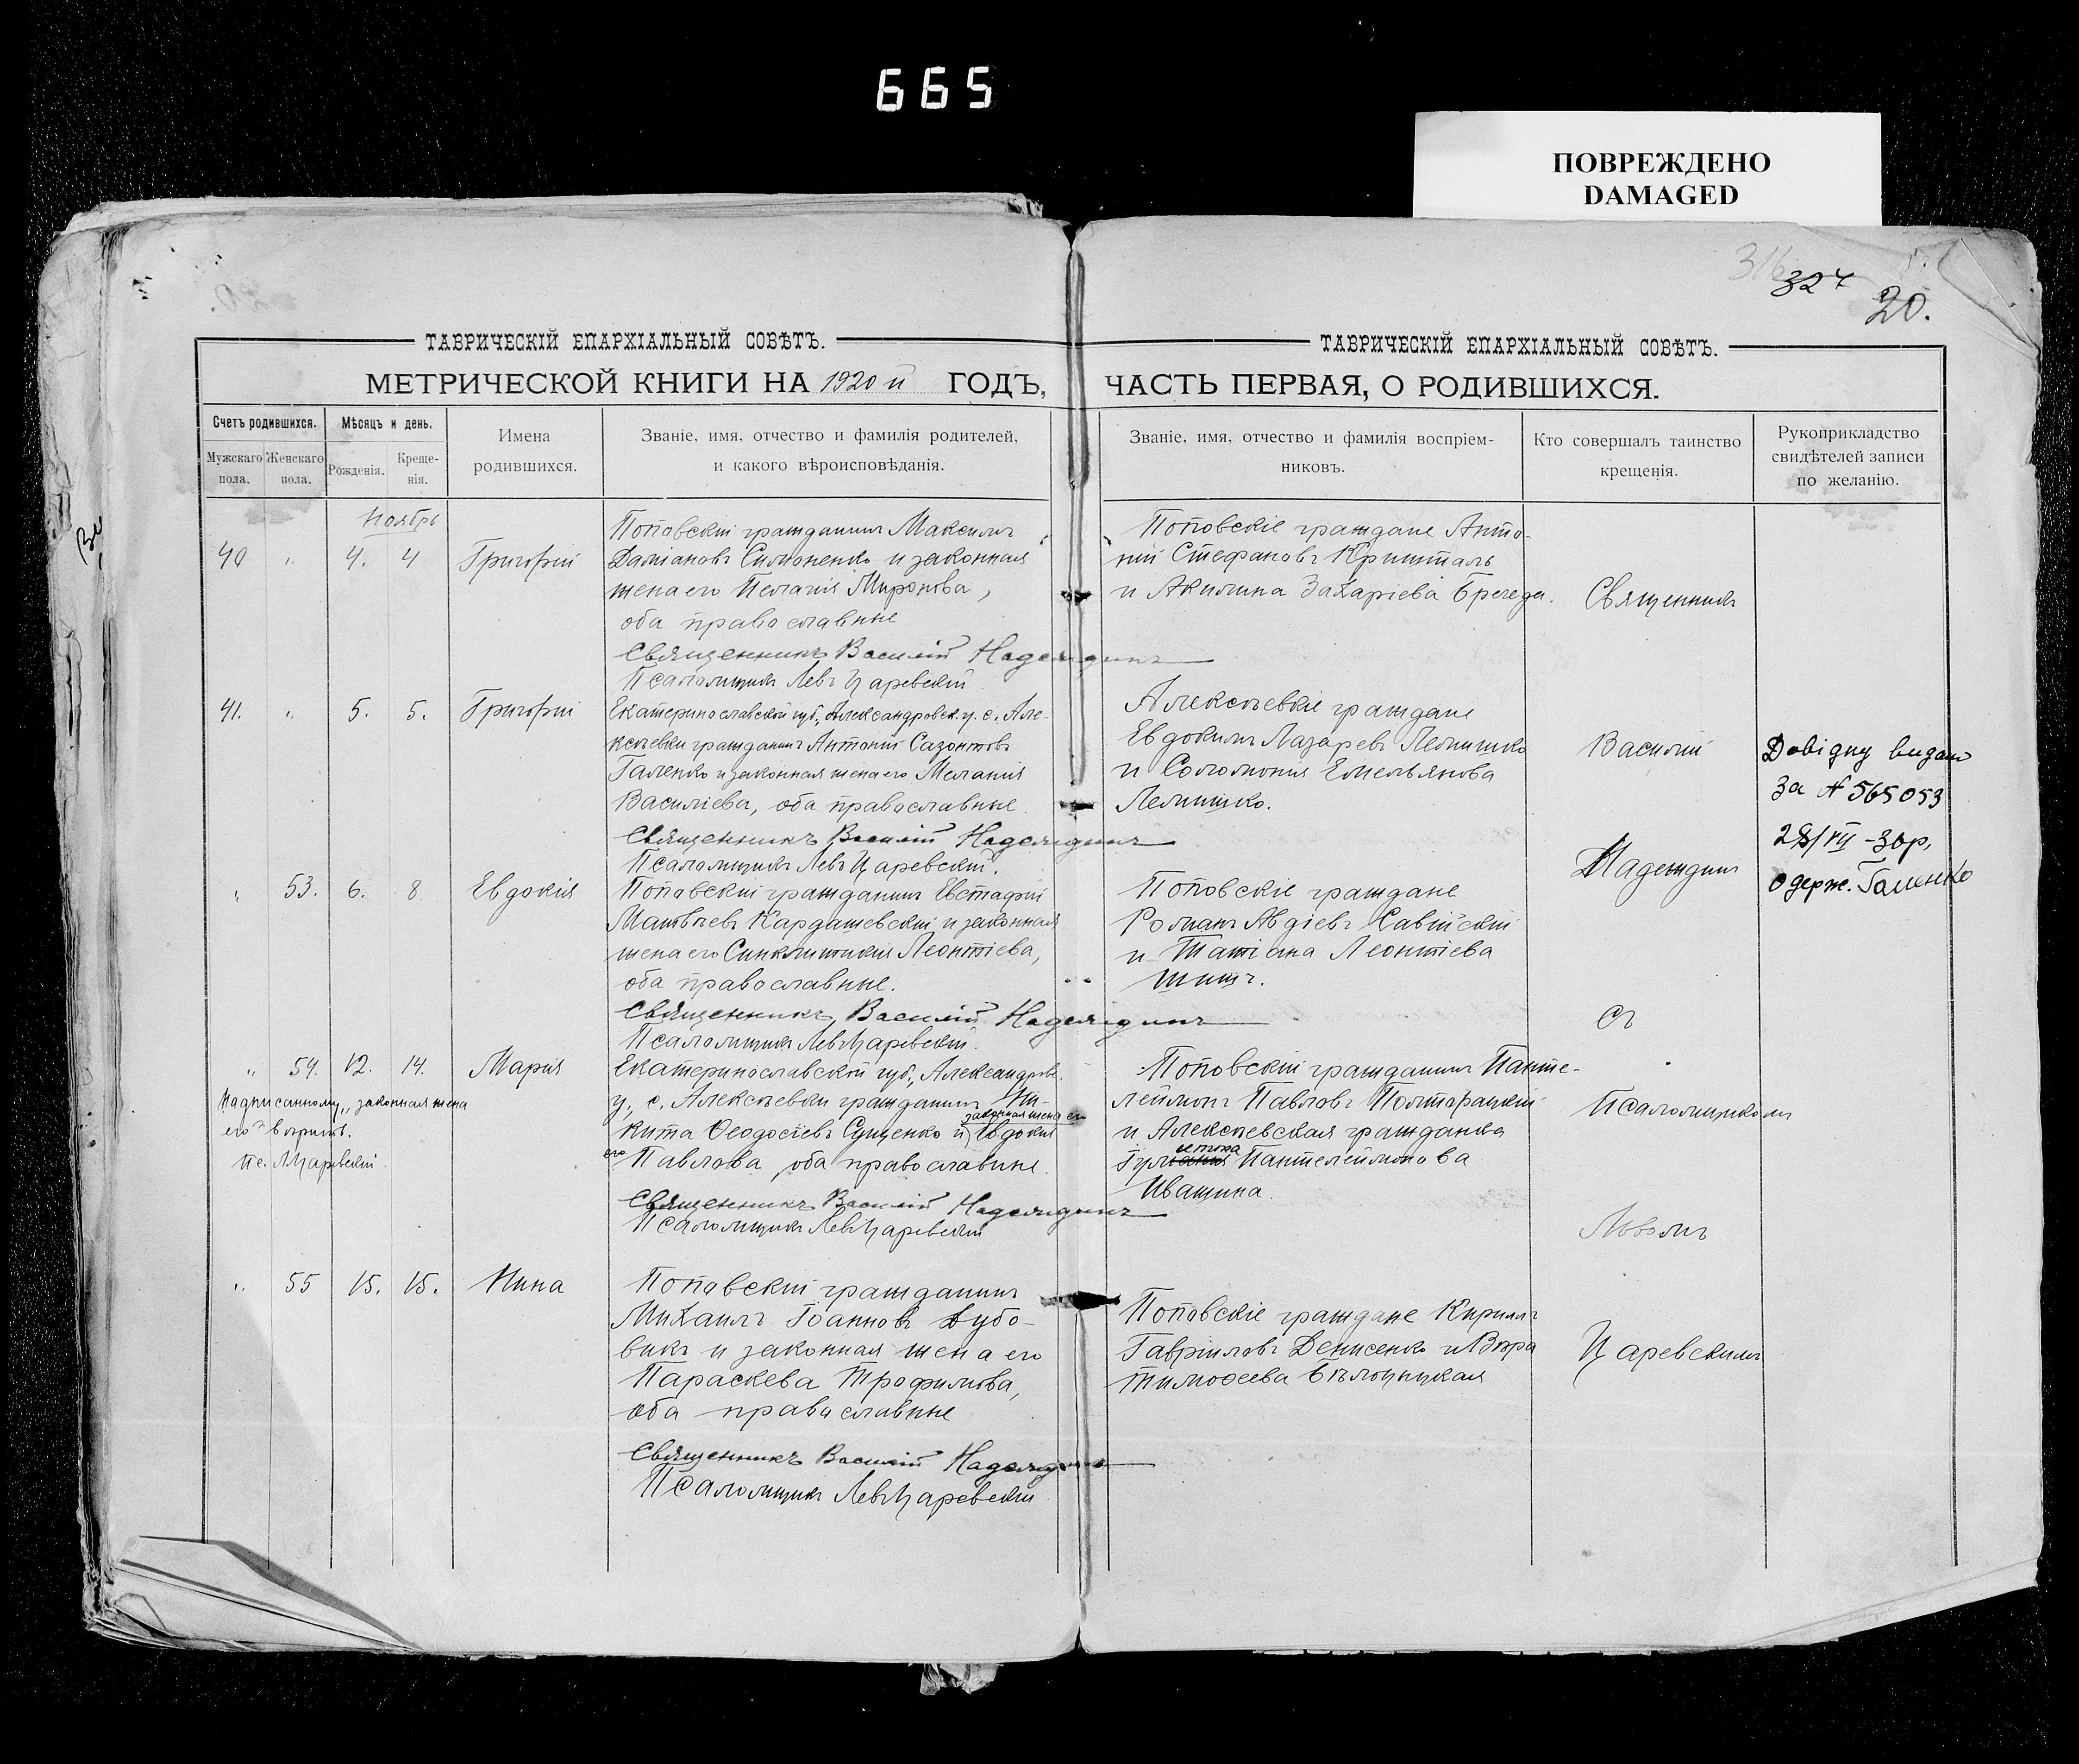 665
ПОВРЕЖДЕНО
DAMAGED
316
327
20.
ТАВРИЧЕСКІЙ ЕПАРХІАЛЬНЫЙ СОВѢТЪ.
МЕТРИЧЕСКОЙ КНИГИ НА 1920й ГОДЪ,
Счетъ родившихся.
Мужскаго пола.
Женскаго пола.
Мѣсяцъ и день.
Рожденія.
Креще-
нія.
Имена
родившихся.
Званіе, имя, отчество и фамилія родителей,
и какого вѣроисповѣданія.
ТАВРИЧЕСКІЙ ЕПАРХІАЛЬНЫЙ СОВѢТЪ.
ЧАСТЬ ПЕРВАЯ, О РОДИВШИХСЯ.
Званіе, имя, отчество и фамилія воспріем-
никовъ.
Кто совершалъ таинство
крещенія.
Рукоприкладство
свидѣтелей записи
по желанію.
Ноябрь
40 " 4. 4 Григорій
Поповскій гражданинъ Максимъ
Даміановъ Симоненко и законная
жена его Пелагія Миронова,
оба православные
Священникъ Василій Надеждинъ
Псаломщикъ Левъ Царевскій
Поповскіе граждане Анто-
ній Стефановъ Кришталь
и Акилина Захаріева Брегеда.
41. " 5. 5. Григорій
Екатеринославской губ., Александровск. у. с. Але-
ксѣевки гражданинъ Антоній Сазонтовъ
Галенко и законная жена его Меланія
Василіева, оба православные
Священникъ Василій Надеждинъ
Псаломщикъ Левъ Царевскій.
Алексѣевскіе граждане
Евдокимъ Лазаревъ Лемишко
и Соломонія Емельянова
Лемишко.
Довідку видано
За № 565053
28/VII-30р.
Одерж. Галенко
" 53. 6. 8. Евдокія
Поповскій гражданинъ Евстафій
Матвѣевъ Кардашевскій и законная
жена его Синклитикія Леонтіева,
оба православные.
Священникъ Василій Надеждинъ
Псаломщикъ Левъ Царевскій.
Поповскіе граждане
Романъ Авдіевъ Савійскій
и Татіана Леонтіева
Шишъ.
" 54. 12. 14. Марія
Надписанному „законная жена
его" вѣрить.
Пс. Л Царевскій
Екатеринославской губ., Александровс.
у., с. Алексѣевки гражданинъ Ни-
кита Ѳеодосіевъ Сущенко и законная жена его Евдокія
Павлова, оба православные.
Священникъ Василій Надеждинъ
Псаломщикъ Левъ Царевскій
Поповскій гражданинъ Панте-
леймонъ Павловъ Полторацкій
и Алексѣевская гражданка
Пантелеймонова
Ивашина.
" 55 15. 15. Нина
Поповскій гражданинъ
Михаилъ Іоанновъ Дубо-
викъ и законная жена его
Параскева Трофимова,
оба православные
Священникъ Василій Надеждинъ
Псаломщикъ Левъ Царевскій
Поповскіе граждане Кириллъ
Гавріиловъ Денисенко и Вѣра
Тимоѳеева Бѣлоцицкая
Священникъ
Василій
Надеждинъ
съ
Псаломщикомъ
Львомъ
Царевскимъ